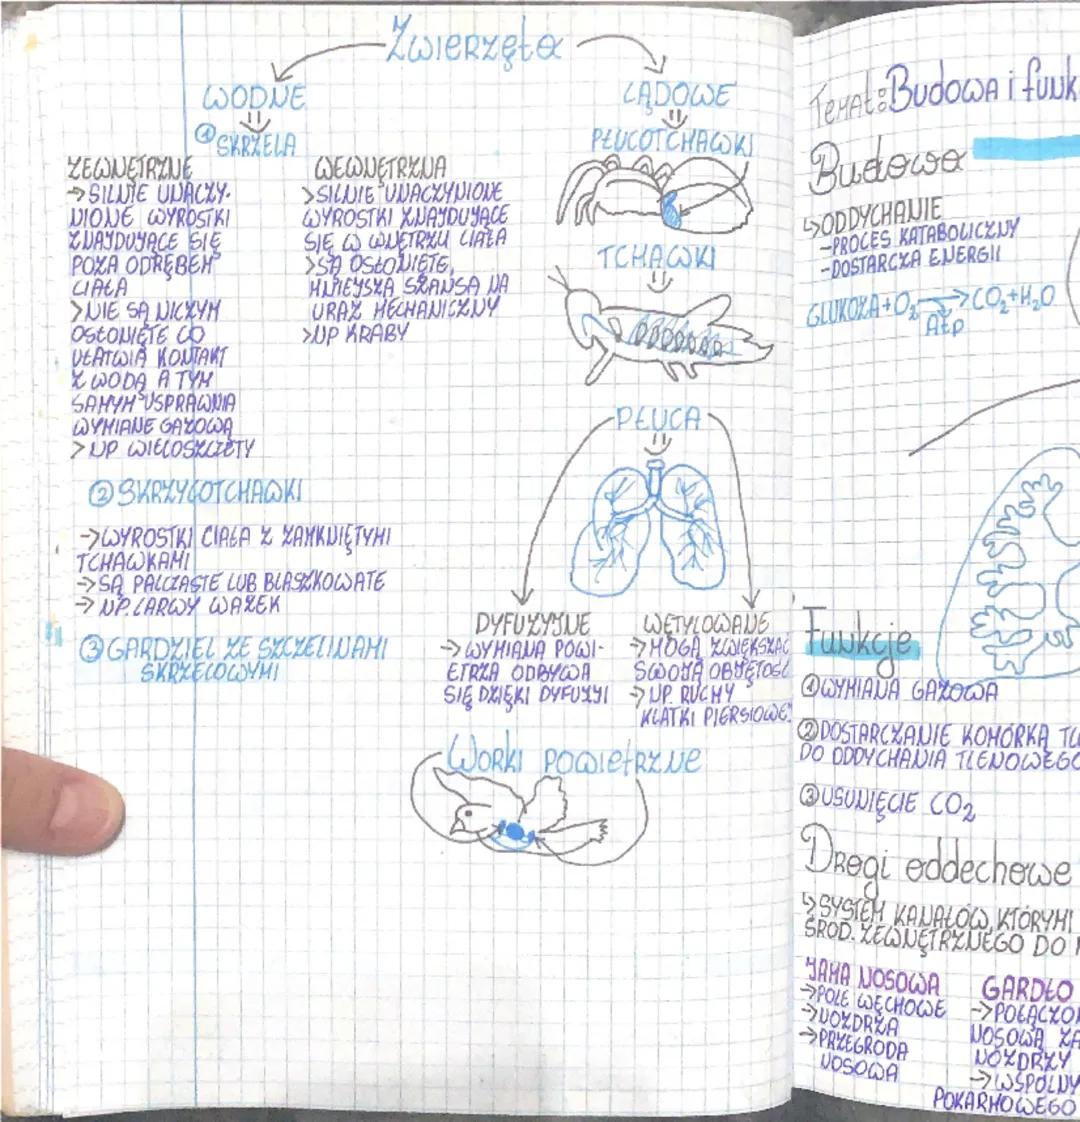 Zwierzęta
WODNE
①SKRZELA
ZEWNĘTRZNE
→SILNIE UNACZY-
NIONE WYROSTKI
ZNAJDUJĄCE SIĘ
POZA ODRĘBEM
CIAŁA
>NIE SĄ NICZYM
OSŁONIĘTE CO
UŁATWIA KONTAKT
Z WODĄ A TYM
SAMYM USPRAWNIA
WYMIANE GAZOWĄ
>NP WIELOSZCZETY
WEWNĘTRZNA
>SILNIE UNACZYNIONE
WYROSTKI ZNAJDUJĄCE
SIĘ W WNĘTRZU CIAŁA
>SĄ OSŁONIĘTE,
MNIEJSZĄ SZANSĄ NA
URAZ MECHANICZNY
>NP KRABY
②SKRZYLOTCHAWKI
→WYROSTKI CIAŁA Z ZAMKNIĘTYMI
TCHAWKAMI
→SĄ PALCZASTE LUB BLASZKOWATE
→NP. LARWY WAŻEK
③GARDZIEL ZE SZCZELINAMI
SKRZELOWYMI
LĄDOWE
PŁUCOTCHAWKI
TCHAWKI
PŁUCA
DYFUZYJNE
→WYMIANA POWI-
ETRZA ODBYWA
SIĘ DZIĘKI DYFUZJI
WĘTYLOWANE
→MOGĄ ZWIĘKSZAĆ
SWOJĄ OBJĘTOŚĆ
→NP. RUCHY
KLATKI PIERSIOWEJ
Worki powietrzne
Temat: Budowa i funk
Budowa
↳ODDYCHANIE
-PROCES KATABOLICZNY
-DOSTARCZA ENERGII
GLUKOZA+O₂→CO₂+H₂O
ATP
Funkcje
①WYMIANA GAZOWA
②DOSTARCZANIE KOMÓRKĄ TL
DO ODDYCHANIA TLENOWEGO
③USUNIĘCIE CO₂
Drogi oddechowe
↳SYSTEM KANAŁÓW, KTÓRYMI
ŚROD. ZEWNĘTRZNEGO DO
JAMA NOSOWA
→POLE WĘCHOWE
→NOZDRZA
→PRZEGRODA
NOSOWA
GARDŁO
→POŁĄCZON
NOSOWĄ ZA
NOZDRZY
→WSPÓLNY
POKARMOWEGO